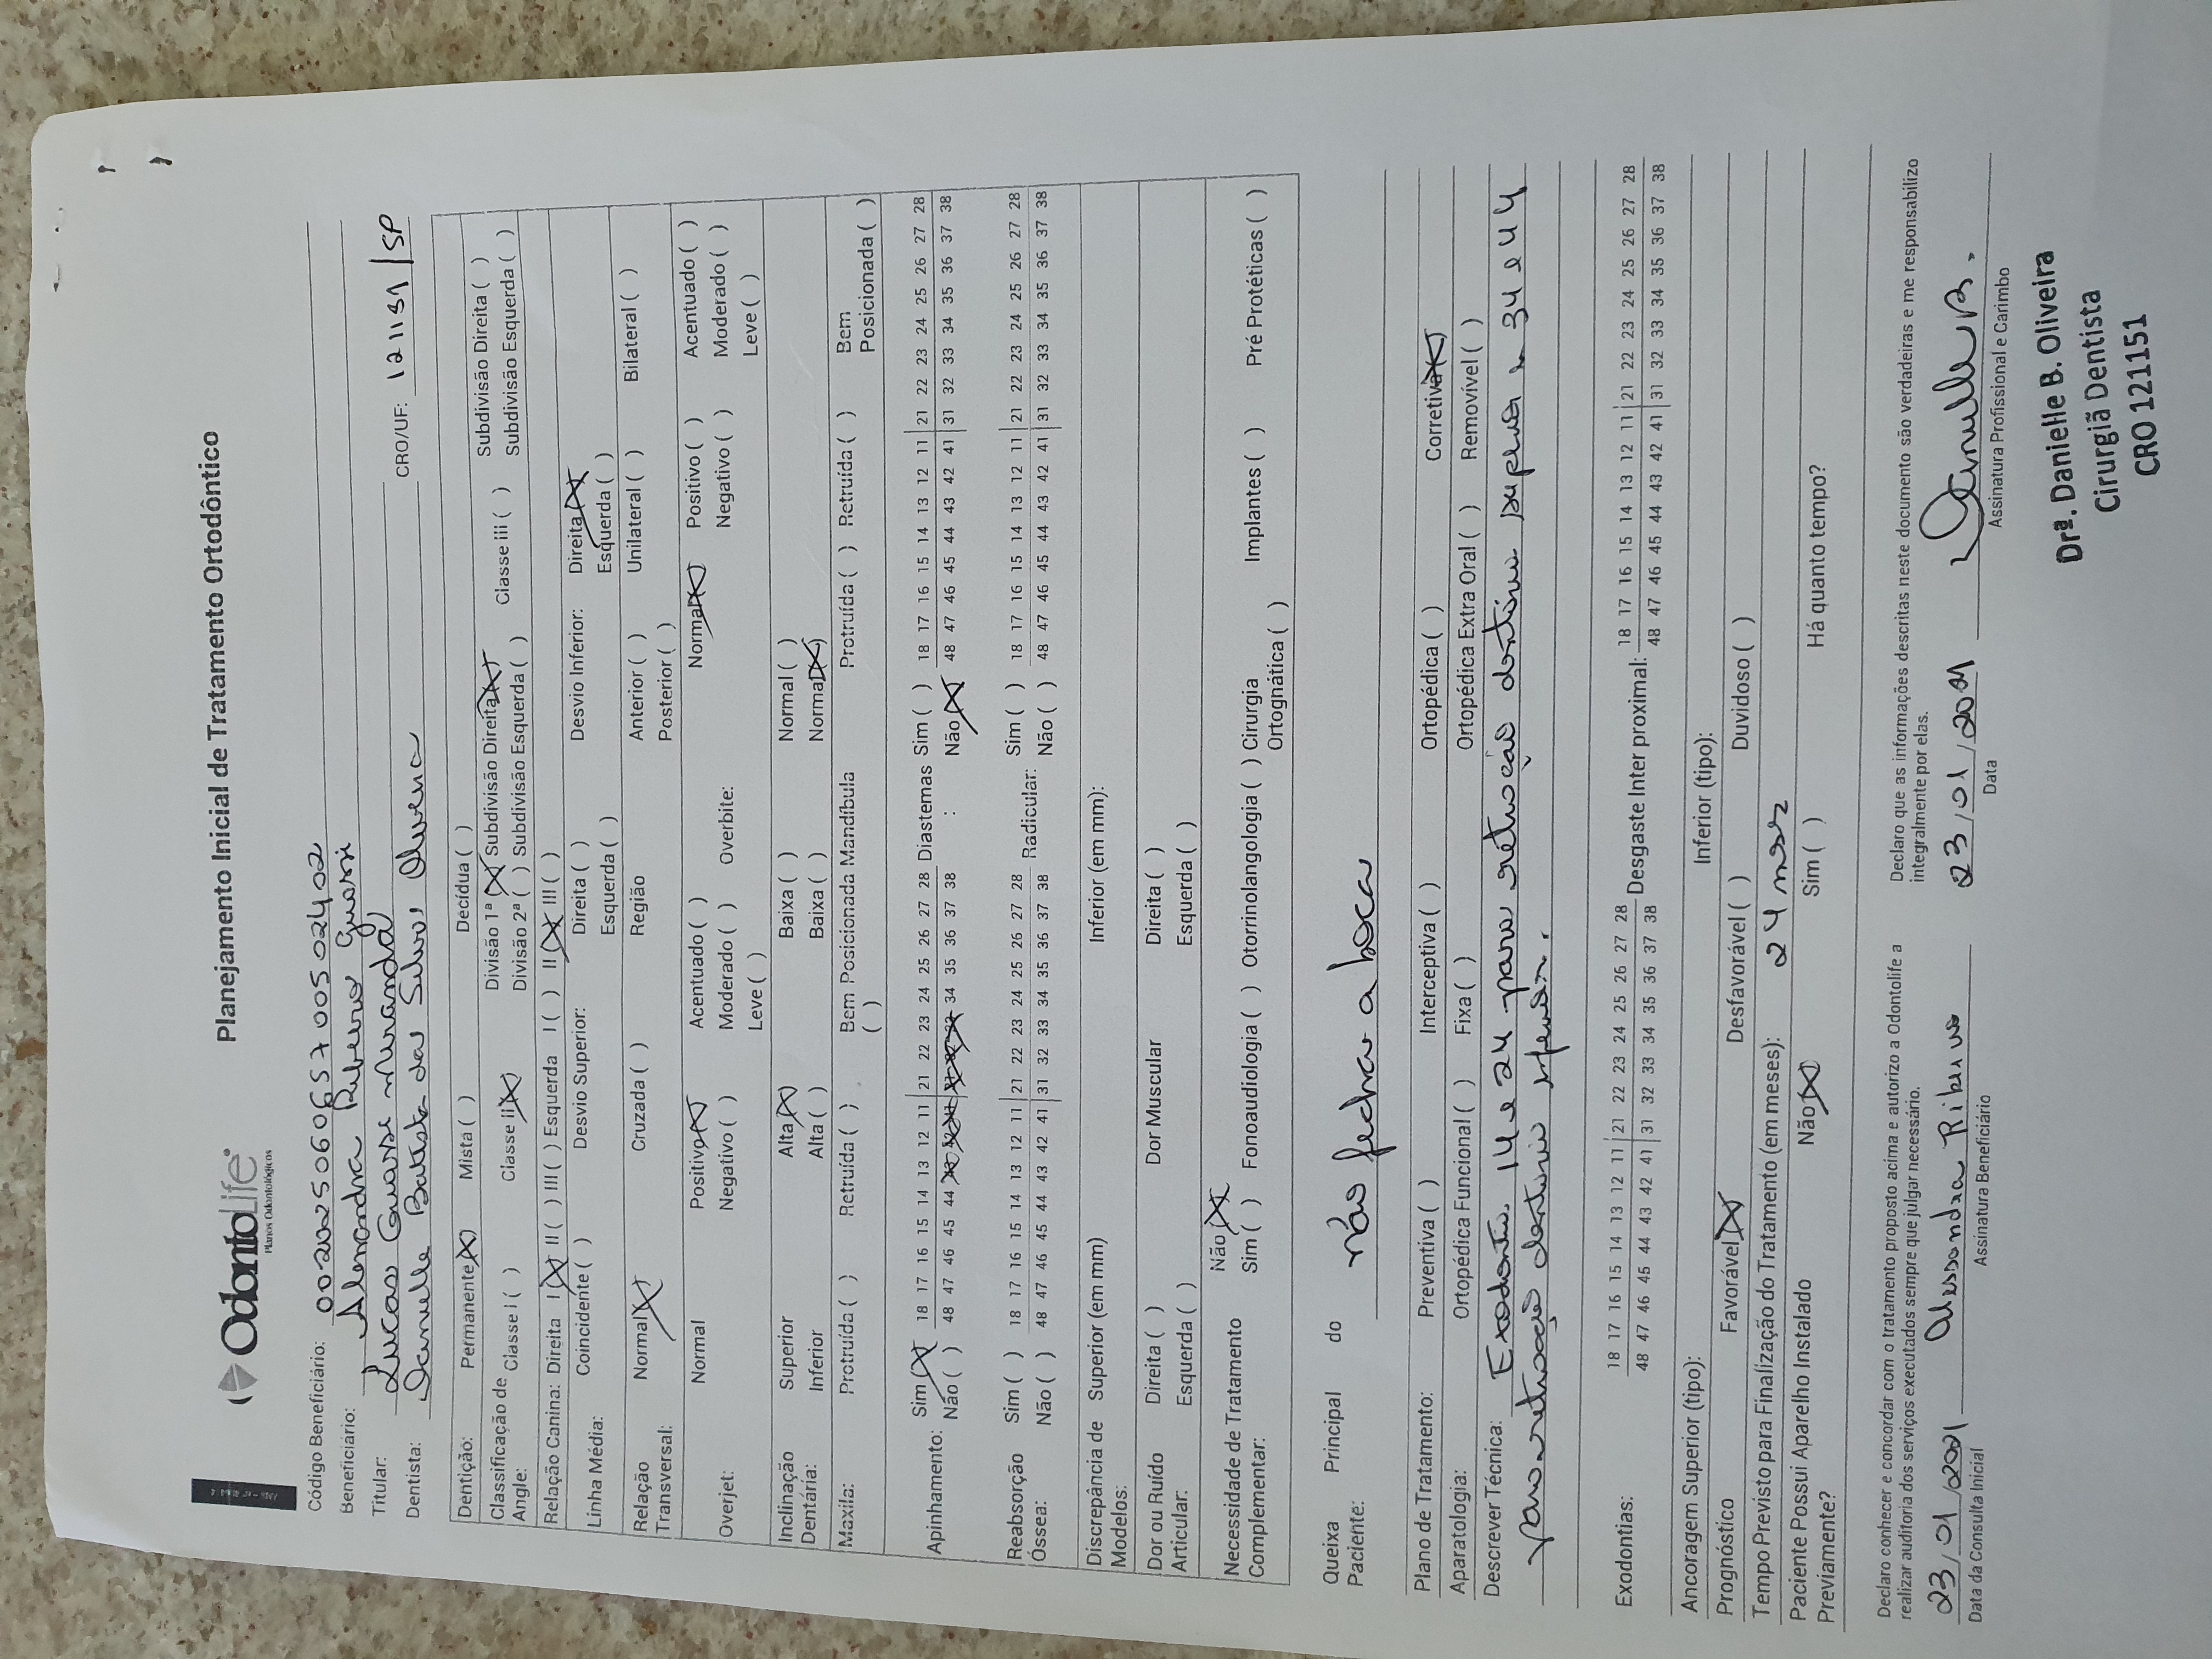 OdontoLife
Planos Odontológicos
Planejamento Inicial de Tratamento Ortodôntico
Código Beneficiário: 00202506065700502402
Beneficiário: Alexandra Ribeiro Guassi
Titular: Lucas Guassi Miranda
Dentista: Danielle Batista das Silvas Oliveira CRO/UF: 121151/SP
Dentição: Permanente (X) Mista ( ) Decídua ( )
Classificação de Angle: Classe I ( ) Classe ii (X) Divisão 1ª (X) Subdivisão Direita (X) Classe iii ( ) Subdivisão Direita ( )
Divisão 2ª ( ) Subdivisão Esquerda ( ) Subdivisão Esquerda ( )
Relação Canina: Direita I (X) II ( ) III ( ) Esquerda I ( ) II (X) III ( )
Linha Média: Coincidente ( ) Desvio Superior: Direita ( ) Desvio Inferior: Direita (X)
Esquerda ( ) Esquerda ( )
Relação Transversal: Normal (X) Cruzada ( ) Região Anterior ( ) Unilateral ( ) Bilateral ( )
Posterior ( )
Overjet: Normal Positivo (X) Acentuado ( ) Overbite: Normal (X) Positivo ( ) Acentuado ( )
Negativo ( ) Moderado ( ) Negativo ( ) Moderado ( )
Leve ( ) Leve ( )
Inclinação Dentária: Superior Alta (X) Baixa ( ) Normal ( )
Inferior Alta ( ) Baixa ( ) Normal (X)
Maxila: Protruída ( ) Retruída ( ) Bem Posicionada ( ) Mandíbula Protruída ( ) Retruída ( ) Bem Posicionada ( )
Apinhamento: Sim (X) 18 17 16 15 14 13 12 11 | 21 22 23 24 25 26 27 28 Diastemas Sim ( ) 18 17 16 15 14 13 12 11 | 21 22 23 24 25 26 27 28
Não ( ) 48 47 46 45 44 43 42 41 31 32 33 34 35 36 37 38 : Não (X) 48 47 46 45 44 43 42 41 | 31 32 33 34 35 36 37 38
Reabsorção Óssea: Sim ( ) 18 17 16 15 14 13 12 11 | 21 22 23 24 25 26 27 28 Radicular: Sim ( ) 18 17 16 15 14 13 12 11 | 21 22 23 24 25 26 27 28
Não ( ) 48 47 46 45 44 43 42 41 | 31 32 33 34 35 36 37 38 Não ( ) 48 47 46 45 44 43 42 41 | 31 32 33 34 35 36 37 38
Discrepância de Modelos: Superior (em mm) Inferior (em mm):
Dor ou Ruído Articular: Direita ( ) Dor Muscular Direita ( )
Esquerda ( ) Esquerda ( )
Necessidade de Tratamento Complementar: Não (X)
Sim ( ) Fonoaudiologia ( ) Otorrinolangologia ( ) Cirurgia Ortognática ( ) Implantes ( ) Pré Protéticas ( )
Queixa Principal do Paciente: não fechar a boca
Plano de Tratamento: Preventiva ( ) Interceptiva ( ) Ortopédica ( ) Corretiva (X)
Aparatologia: Ortopédica Funcional ( ) Fixa ( ) Ortopédica Extra Oral ( ) Removível ( )
Descrever Técnica: Exodontia 14 e 24 para retração dentária superior e 34 e 44
para retração dentária inferior.
Exodontias: 18 17 16 15 14 13 12 11 | 21 22 23 24 25 26 27 28 Desgaste Inter proximal: 18 17 16 15 14 13 12 11 | 21 22 23 24 25 26 27 28
48 47 46 45 44 43 42 41 | 31 32 33 34 35 36 37 38 48 47 46 45 44 43 42 41 | 31 32 33 34 35 36 37 38
Ancoragem Superior (tipo): Inferior (tipo):
Prognóstico Favorável (X) Desfavorável ( ) Duvidoso ( )
Tempo Previsto para Finalização do Tratamento (em meses): 24 meses
Paciente Possui Aparelho Instalado Previamente? Não (X) Sim ( ) Há quanto tempo?
Declaro conhecer e concordar com o tratamento proposto acima e autorizo a Odontolife a
realizar auditoria dos serviços executados sempre que julgar necessário.
23/01/2021 Alessandra Ribeiro
Data da Consulta Inicial Assinatura Beneficiário
Declaro que as informações descritas neste documento são verdadeiras e me responsabilizo
integralmente por elas.
23/01/2021
Data Assinatura Profissional e Carimbo
Drª. Danielle B. Oliveira
Cirurgiã Dentista
CRO 121151